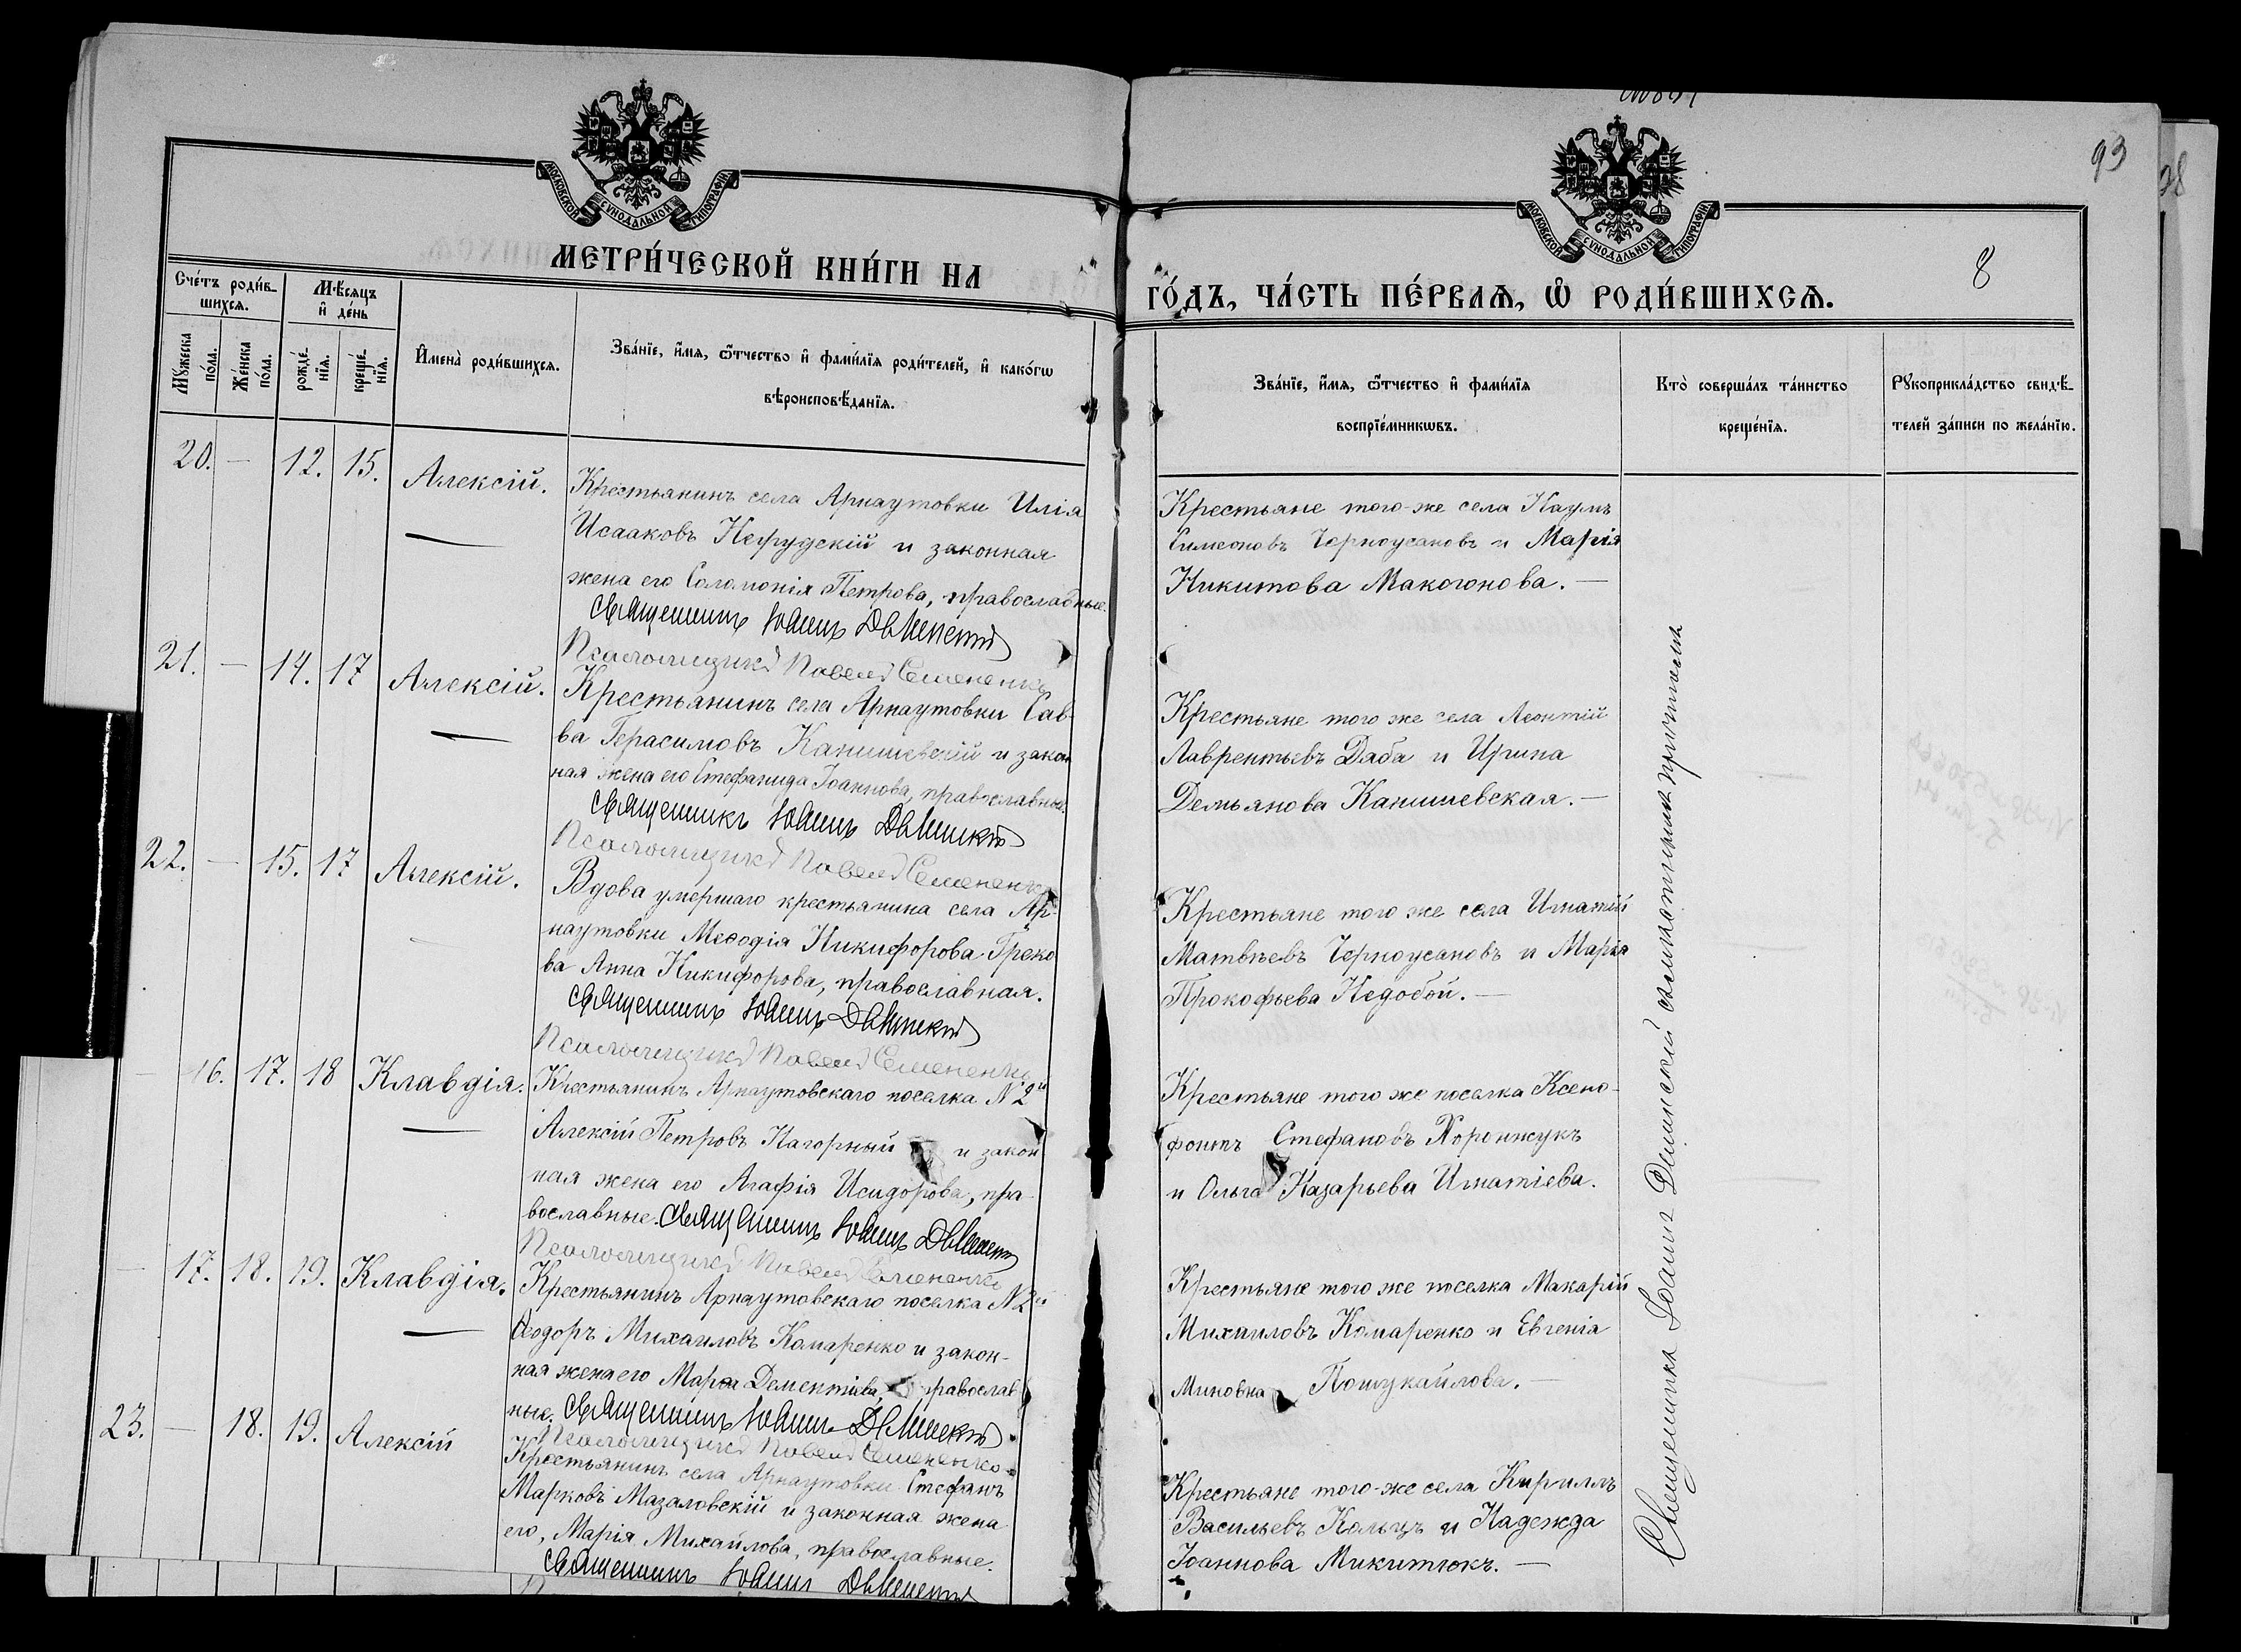 93
98
8
МОСКОВСКОЙ СѴНОДАЛЬНОЙ ТИПОГРАФІИ
МОСКОВСКОЙ СѴНОДАЛЬНОЙ ТИПОГРАФІИ
МЕТРИ́ЧЕСКОЙ КНИ́ГИ НА
ГО́ДЪ, ЧА́СТЬ ПЕ́РВАѦ, Ѡ҆ РОДИ́ВШИХСѦ.
Сче́тъ роди́в-
шихсѧ.
Мꙋжеска по́ла.
Же́нска по́ла.
Мѣ́сѧцъ
и҆ де́нь
рожде́-
нїѧ.
креще́-
нїѧ.
И҆мена̀ роди́вшихсѧ.
Зва́нїе, и҆́мѧ, ѻ҆́тчество и҆ фами́лїѧ роди́телей, и҆ како́гѡ
вѣроисповѣ́данїѧ.
Зва́нїе, и҆́мѧ, ѻ҆́тчество и҆ фами́лїѧ
воспрїе́мникѡвъ.
Кто̀ соверша́лъ та́инство
креще́нїѧ.
Рꙋкоприкла́дство свидѣ́-
телей за́писи по жела́нїю.
20. — 12. 15. Алексій.
Крестьянинъ села Арнаутовки Илія
Исааковъ Нефудскій и законная
жена его Соломонія Петрова, православные.
Священникъ Іоаннъ
Псаломщикъ Павелъ Семененко
Крестьяне того-же села Наумъ
Симеоновъ Черноусановъ и Марія
Никитова Макогонова. —
21. — 14. 17 Алексій.
Крестьянинъ села Арнаутовки Сав-
ва Герасимовъ Канишевскій и закон
ная жена его Стефанида Іоаннова, православные.
Священникъ Іоаннъ
Псаломщикъ Павелъ Семененко
Крестьяне того же села Леонтій
Лаврентьевъ Даба и Ирина
Демьянова Канишевская. —
22. — 15. 17 Алексій.
Вдова умершаго крестьянина села Ар-
наутовки Меѳодія Никифорова Греко
ва Анна Никифорова, православная.
Священникъ Іоаннъ
Псаломщикъ Павелъ Семененко
Крестьяне того же села Игнатій
Матвѣевъ Черноусановъ и Марія
Прокофьева Недобой. —
— 16. 17. 18 Клавдія.
Крестьянинъ Арнаутовскаго поселка N 2й
Алексій Петровъ Нагорный и закон
ная жена его Агафія Исидорова, пра-
вославные. Священникъ Іоаннъ
Псаломщикъ Павелъ Семененко
Крестьяне того же поселка Ксено-
фонтъ Стефановъ Хоронжукъ
и Ольга Назарьева Игнатіева.
— 17. 18. 19. Клавдія.
Крестьянинъ Арнаутовскаго поселка N 2й
Ѳеодоръ Михаиловъ Комаренко и закон-
ная жена его Марѳа Дементіева, православ
ные. Священникъ Іоаннъ
Псаломщикъ Павелъ Семененко
Крестьяне того же поселка Макарій
Михаиловъ Комаренко и Евгенія
Миновна Пошукайлова. —
23. — 18. 19. Алексій
Крестьянинъ села Арнаутовки Стефанъ
Марковъ Мазаловскій и законная жена
его, Марія Михайлова, православные.
Священникъ Іоаннъ
Крестьяне того-же села Кириллъ
Васильевъ Кольцъ и Надежда
Іоаннова Микитюкъ. —
Священникъ Іоаннъ